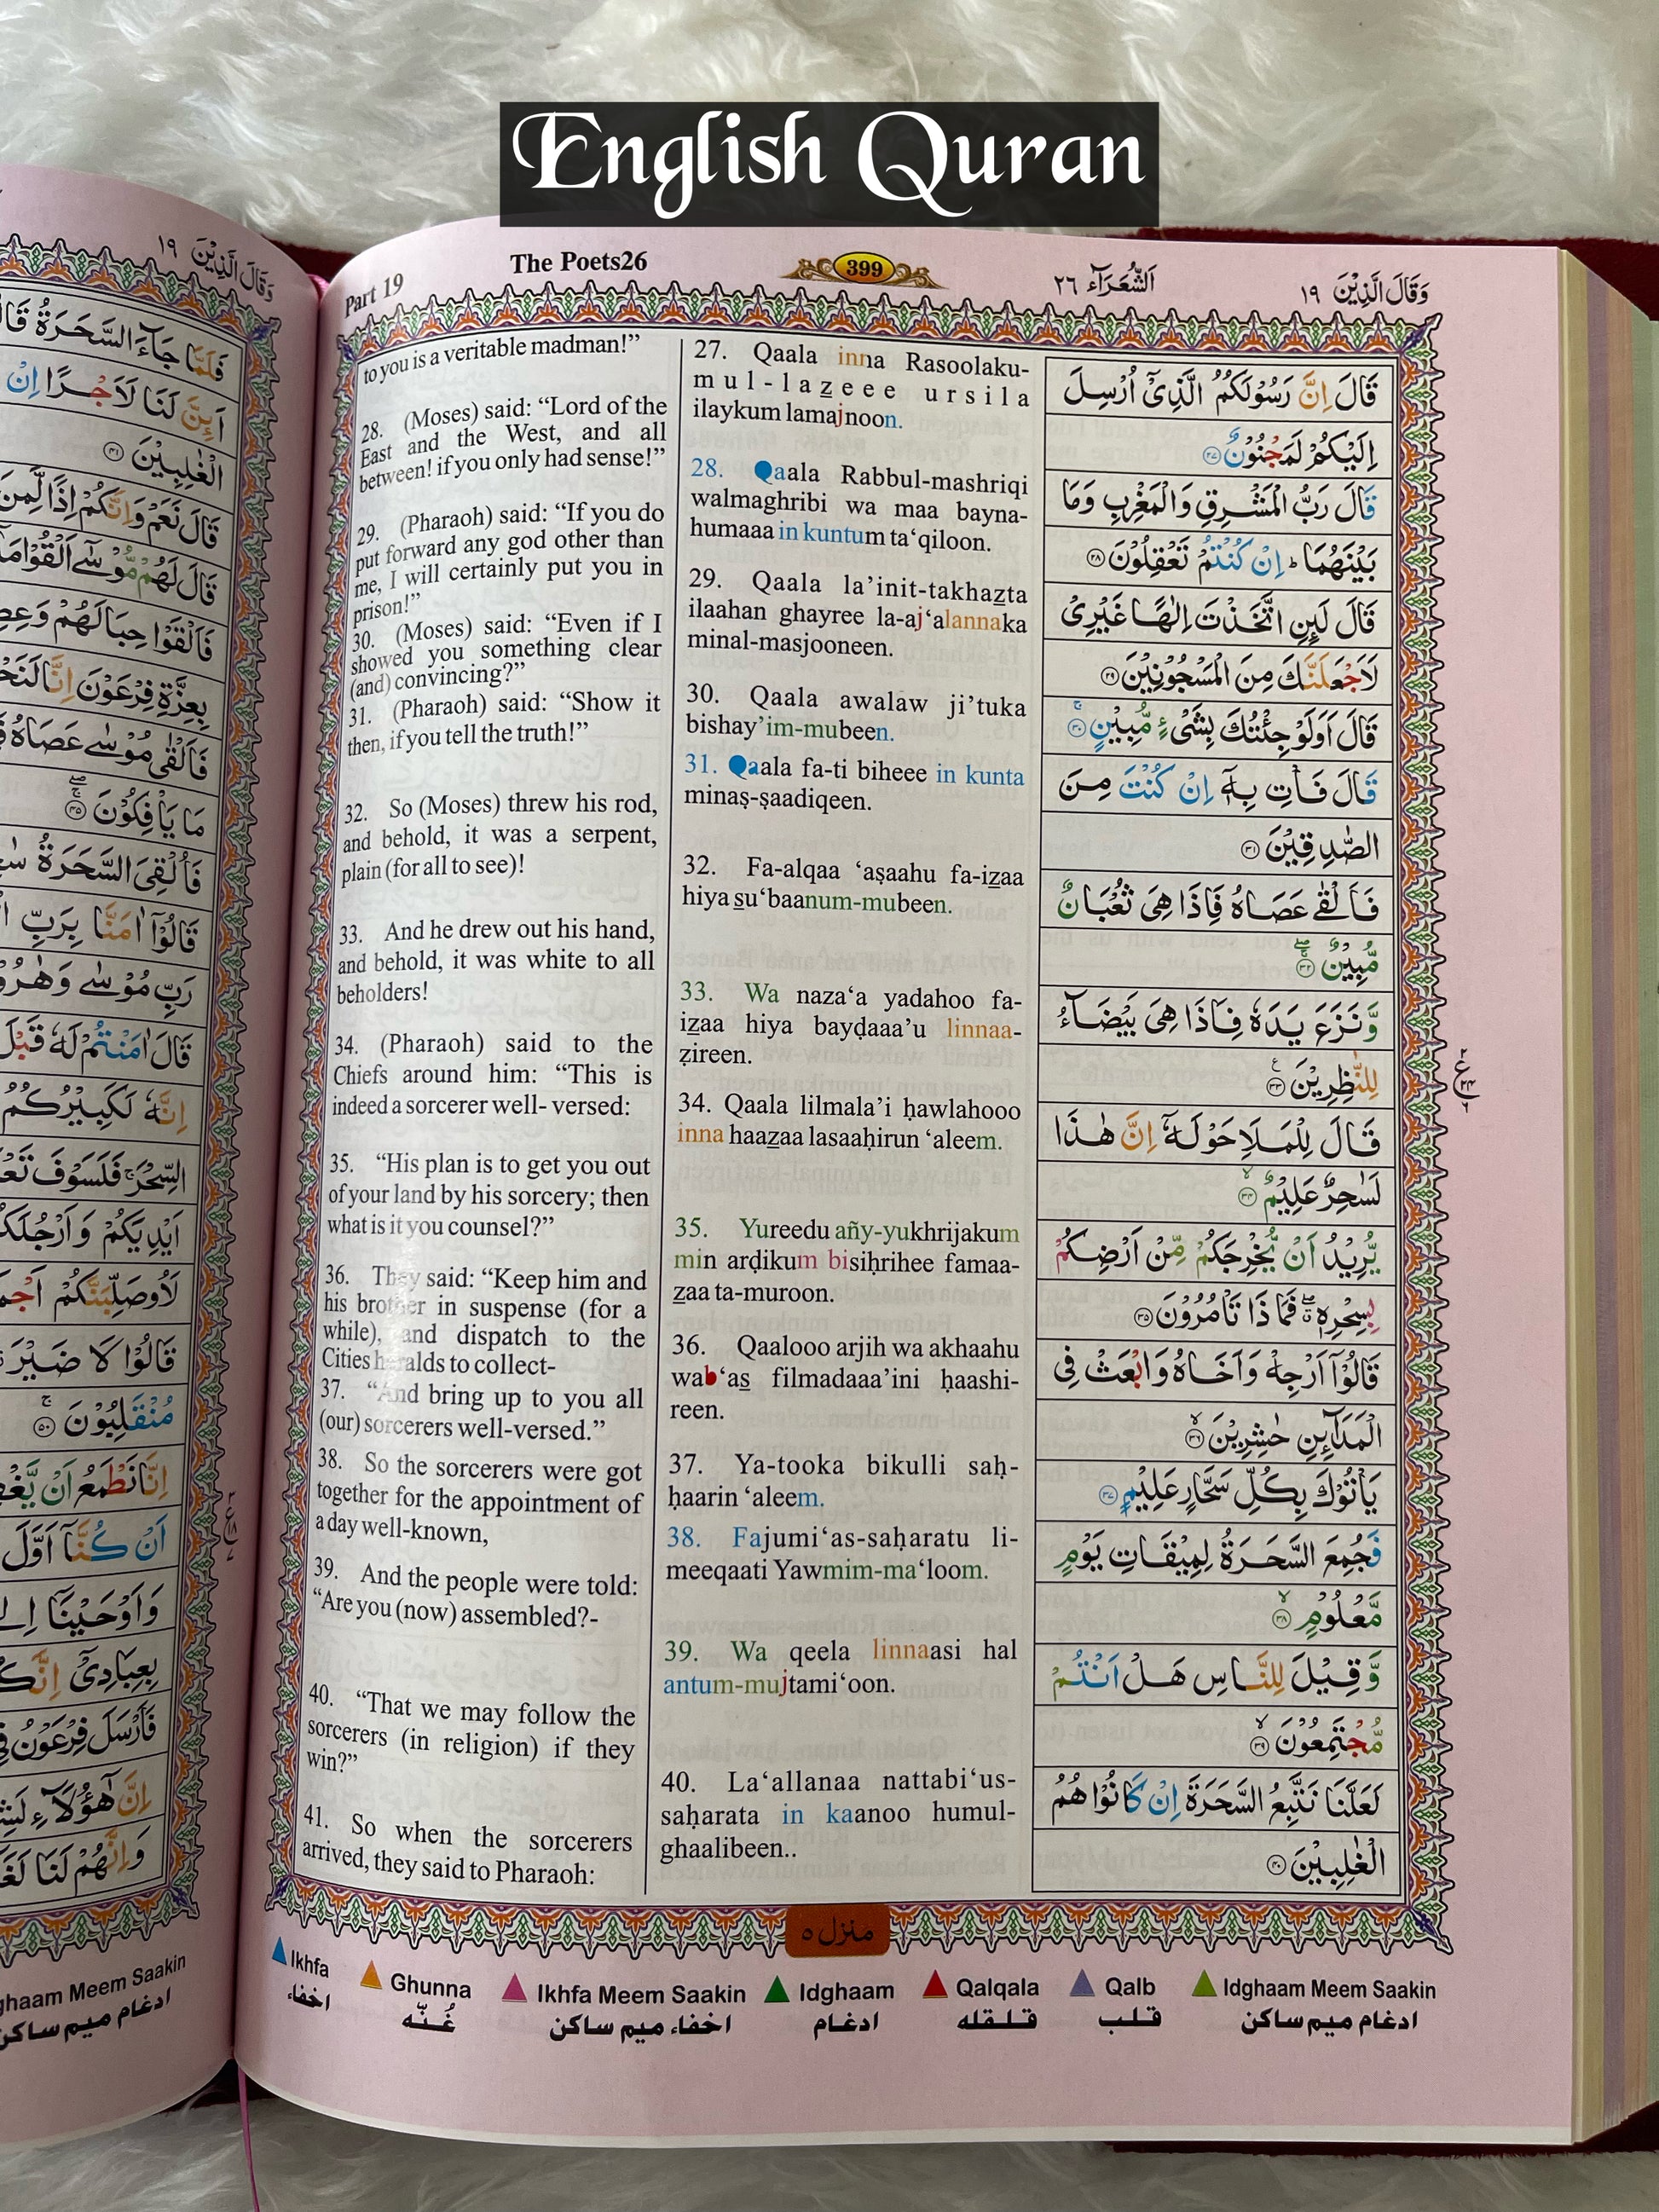 English Quran
Part 19
The Poets26
399
اَلشُّعَرَآء ٢٦
وَقَالَ الَّذِيْنَ ١٩
to you is a veritable madman!”
28. (Moses) said: “Lord of the
East and the West, and all
between! if you only had sense!”
29. (Pharaoh) said: “If you do
put forward any god other than
me, I will certainly put you in
prison!”
30. (Moses) said: “Even if I
showed you something clear
(and) convincing?”
31. (Pharaoh) said: “Show it
then, if you tell the truth!”
32. So (Moses) threw his rod,
and behold, it was a serpent,
plain (for all to see)!
33. And he drew out his hand,
and behold, it was white to all
beholders!
34. (Pharaoh) said to the
Chiefs around him: “This is
indeed a sorcerer well- versed:
35. “His plan is to get you out
of your land by his sorcery; then
what is it you counsel?”
36. They said: “Keep him and
his brother in suspense (for a
while), and dispatch to the
Cities heralds to collect-
37. “And bring up to you all
(our) sorcerers well-versed.”
38. So the sorcerers were got
together for the appointment of
a day well-known,
39. And the people were told:
“Are you (now) assembled?-
40. “That we may follow the
sorcerers (in religion) if they
win?”
41. So when the sorcerers
arrived, they said to Pharaoh:
27. Qaala inna Rasoolaku-
mul-lazeee ursila
ilaykum lamajnoon.
28. Qaala Rabbul-mashriqi
walmaghribi wa maa bayna-
humaaa in kuntum ta‘qiloon.
29. Qaala la’init-takhazta
ilaahan ghayree la-aj‘alannaka
minal-masjooneen.
30. Qaala awalaw ji’tuka
bishay’im-mubeen.
31. Qaala fa-ti biheee in kunta
minaṣ-ṣaadiqeen.
32. Fa-alqaa ‘aṣaahu fa-izaa
hiya su‘baanum-mubeen.
33. Wa naza‘a yadahoo fa-
izaa hiya bayḍaaa’u linnaa-
ẓireen.
34. Qaala lilmala’i ḥawlahooo
inna haazaa lasaaḥirun ‘aleem.
35. Yureedu añy-yukhrijakum
min arḍikum bisiḥrihee famaa-
zaa ta-muroon.
36. Qaalooo arjih wa akhaahu
wab‘as filmadaaa’ini ḥaashi-
reen.
37. Ya-tooka bikulli saḥ-
ḥaarin ‘aleem.
38. Fajumi‘as-saḥaratu li-
meeqaati Yawmim-ma‘loom.
39. Wa qeela linnaasi hal
antum-mujtami‘oon.
40. La‘allanaa nattabi‘us-
saḥarata in kaanoo humul-
ghaalibeen..
قَالَ اِنَّ رَسُوْلَكُمُ الَّذِىْٓ اُرْسِلَ
اِلَيْكُمْ لَمَجْنُوْنٌ ٢٧
قَالَ رَبُّ الْمَشْرِقِ وَالْمَغْرِبِ وَمَا
بَيْنَهُمَا ؕ اِنْ كُنْتُمْ تَعْقِلُوْنَ ٢٨
قَالَ لَىِٕنِ اتَّخَذْتَ اِلٰهًا غَيْرِىْ
لَاَجْعَلَنَّكَ مِنَ الْمَسْجُوْنِيْنَ ٢٩
قَالَ اَوَلَوْ جِئْتُكَ بِشَىْءٍ مُّبِيْنٍ ۚ ٣٠
قَالَ فَاْتِ بِهٖٓ اِنْ كُنْتَ مِنَ
الصّٰدِقِيْنَ ٣١
فَاَلْقٰى عَصَاهُ فَاِذَا هِىَ ثُعْبَانٌ
مُّبِيْنٌ ۖۚ ٣٢
وَّنَزَعَ يَدَهٗ فَاِذَا هِىَ بَيْضَآءُ
لِلنّٰظِرِيْنَ ٣٣
قَالَ لِلْمَلَاِ حَوْلَهٗٓ اِنَّ هٰذَا
لَسٰحِرٌ عَلِيْمٌ ۙ ٣٤
يُّرِيْدُ اَنْ يُّخْرِجَكُمْ مِّنْ اَرْضِكُمْ
بِسِحْرِهٖ ۖۗ فَمَا ذَا تَاْمُرُوْنَ ٣٥
قَالُوْٓا اَرْجِهْ وَاَخَاهُ وَابْعَثْ فِى
الْمَدَآىِٕنِ حٰشِرِيْنَ ۙ ٣٦
يَاْتُوْكَ بِكُلِّ سَحَّارٍ عَلِيْمٍ ٣٧
فَجُمِعَ السَّحَرَةُ لِمِيْقَاتِ يَوْمٍ
مَّعْلُوْمٍ ۙ ٣٨
وَّقِيْلَ لِلنَّاسِ هَلْ اَنْتُمْ
مُّجْتَمِعُوْنَ ۙ ٣٩
لَعَلَّنَا نَتَّبِعُ السَّحَرَةَ اِنْ كَانُوْا هُمُ
الْغٰلِبِيْنَ ٤٠
منزل ٥
Ikhfa
Ghunna
Ikhfa Meem Saakin
Idghaam
Qalqala
Qalb
Idghaam Meem Saakin
اخفاء
غُنّه
اخفاء ميم ساكن
ادغام
قلقله
قلب
ادغام ميم ساكن
وَقَالَ الَّذِيْنَ ١٩
فَلَمَّا جَآءَ السَّحَرَةُ
اَىِٕنَّ لَنَا لَاَجْرًا اِنْ
الْغٰلِبِيْنَ ٤١
قَالَ نَعَمْ وَاِنَّكُمْ اِذًا لَّمِنَ
قَالَ لَهُمْ مُّوْسٰٓى اَلْقُوْا
فَاَلْقَوْا حِبَالَهُمْ
بِعِزَّةِ فِرْعَوْنَ اِنَّا
فَاَلْقٰى مُوْسٰى عَصَاهُ
مَا يَاْفِكُوْنَ ۖۚ ٤٥
فَاُلْقِىَ السَّحَرَةُ
قَالُوْٓا اٰمَنَّا بِرَبِّ
رَبِّ مُوْسٰى وَهٰرُوْنَ
قَالَ اٰمَنْتُمْ لَهٗ قَبْلَ
اِنَّهٗ لَكَبِيْرُكُمُ
السِّحْرَ ۚ فَلَسَوْفَ
اَيْدِيَكُمْ وَاَرْجُلَكُمْ
لَاُوصَلِّبَنَّكُمْ
قَالُوْا لَا ضَيْرَ
مُنْقَلِبُوْنَ ۚ ٥٠
اِنَّا نَطْمَعُ اَنْ يَّغْفِرَ
اَنْ كُنَّآ اَوَّلَ
وَاَوْحَيْنَآ
بِعِبَادِىْٓ
فَاَرْسَلَ فِرْعَوْنُ
اِنَّ هٰٓؤُلَآءِ
وَاِنَّهُمْ لَنَا
ghaam Meem Saakin
ادغام ميم ساكن